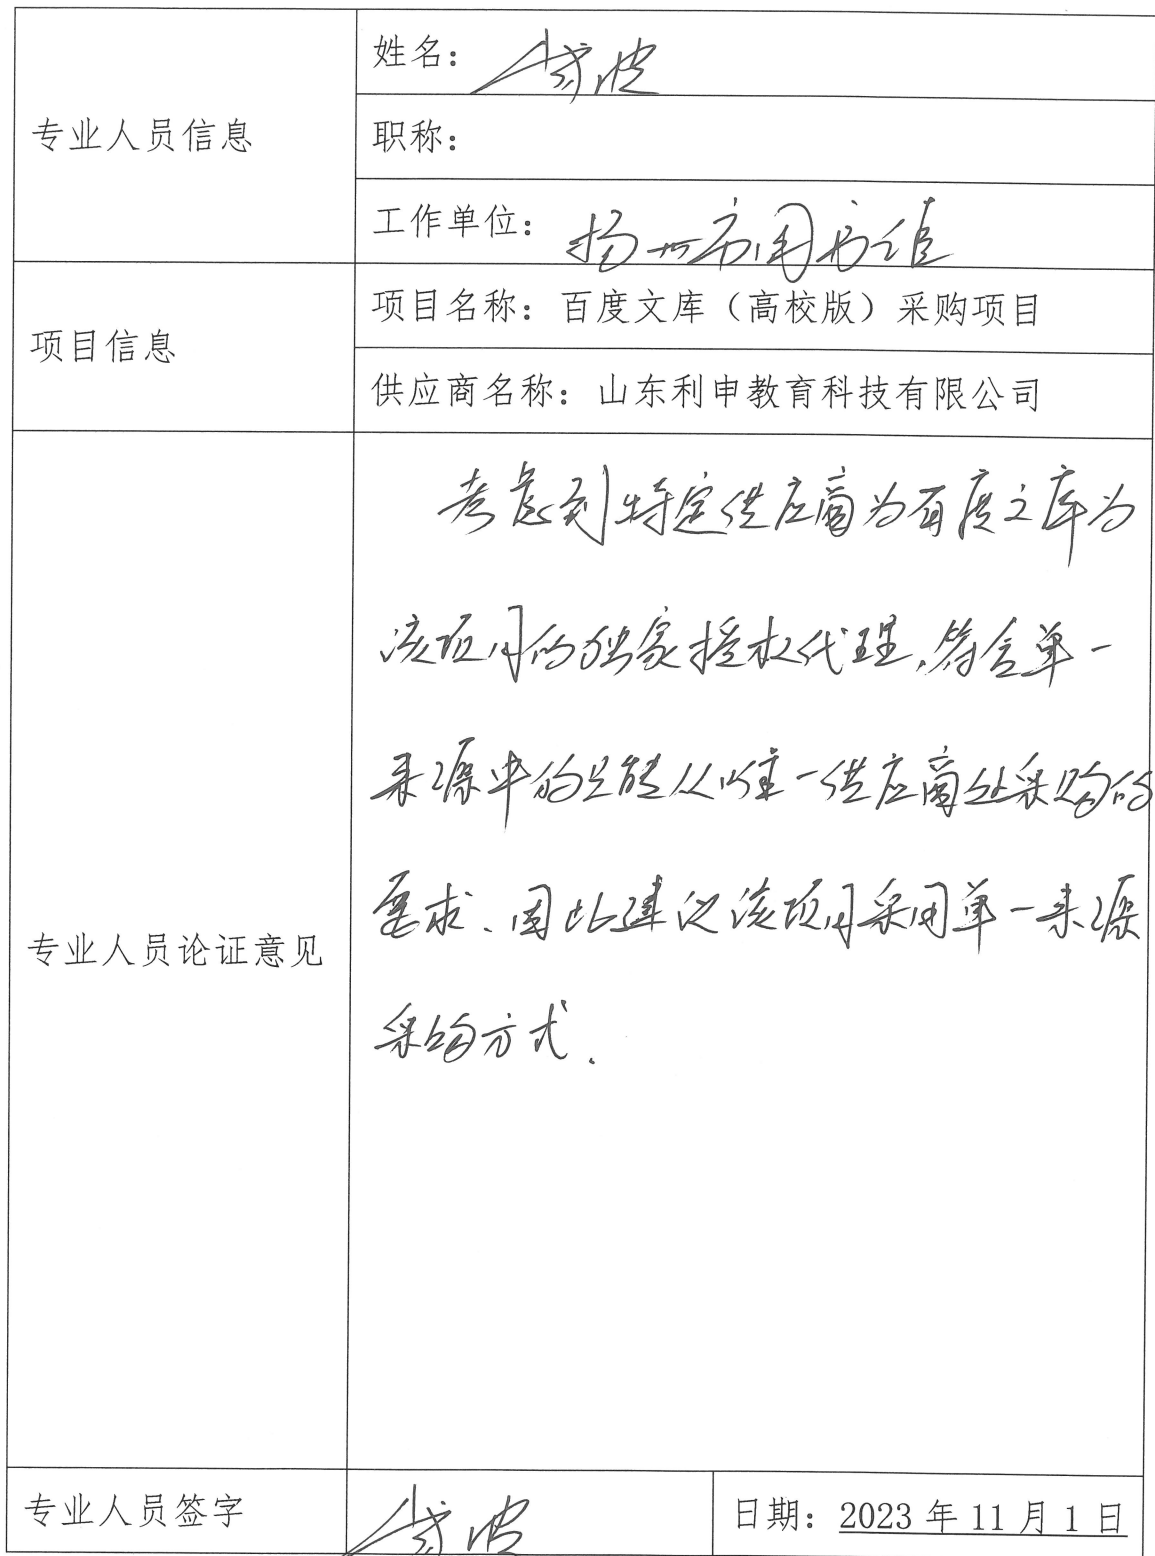 专业人员信息
姓名：
职称：
工作单位：扬州市图书馆
项目信息
项目名称：百度文库（高校版）采购项目
供应商名称：山东利申教育科技有限公司
专业人员论证意见
考虑到特定供应商为百度文库为
该项目的独家授权代理，符合单一
来源中的只能从唯一供应商处采购的
要求、因此建议该项目采用单一来源
采购方式．
专业人员签字
日期：2023 年 11 月 1 日